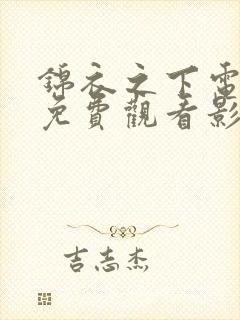 錦衣之下電
免費觀看影
吉志杰